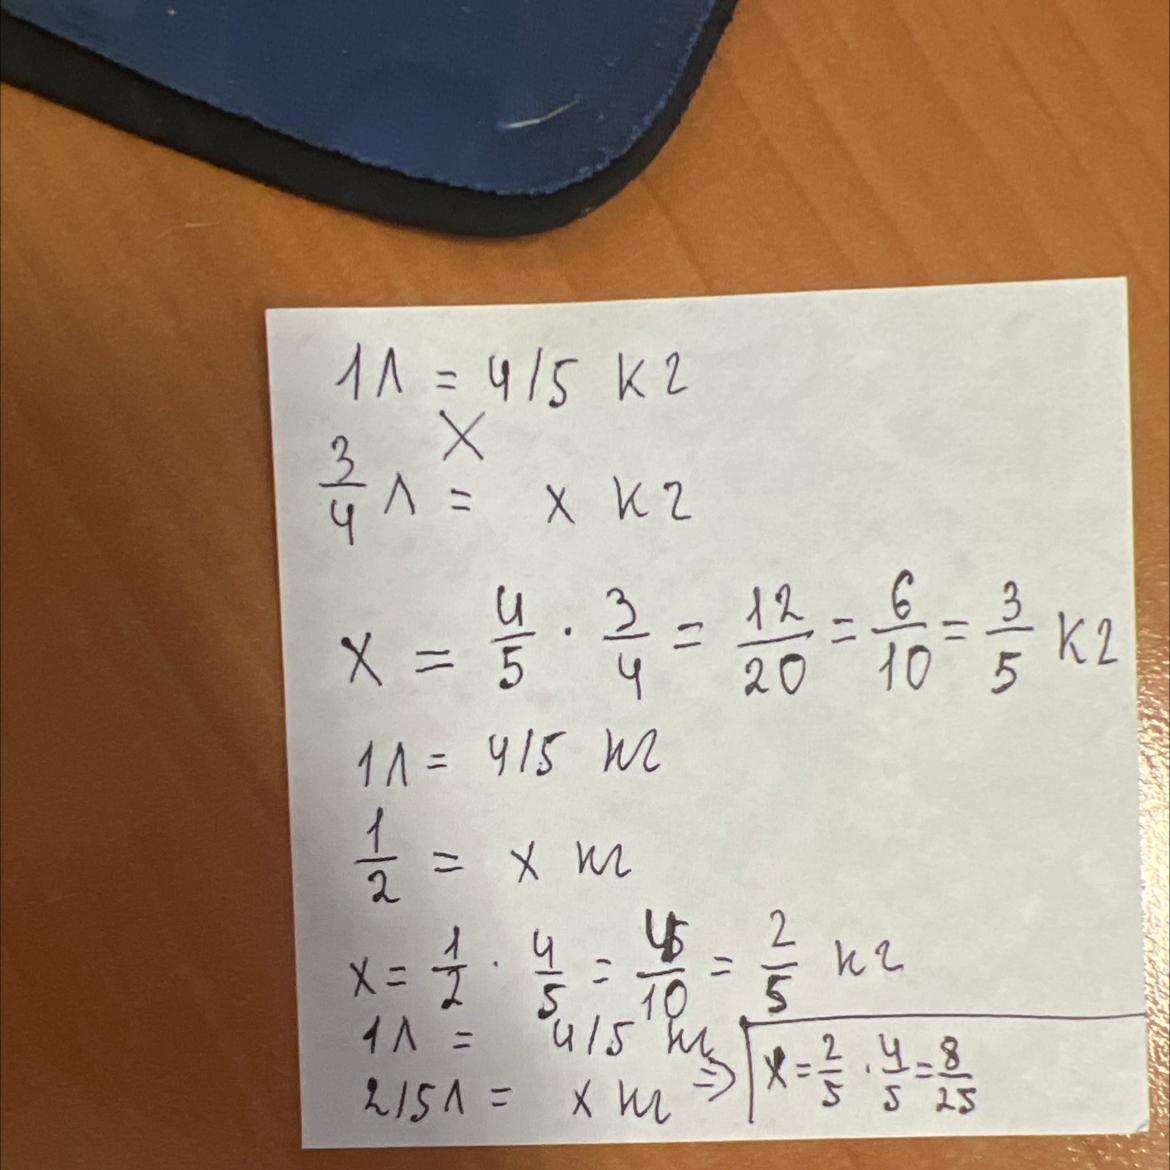 1л = 4/5 кг
X
3/4 л = x кг
x = 4/5 · 3/4 = 12/20 = 6/10 = 3/5 кг
1л = 4/5 кг
1/2 = x кг
x = 1/2 · 4/5 = 4/10 = 2/5 кг
1л = 4/5 кг
2/5л = x кг => x = 2/5 · 4/5 = 8/25